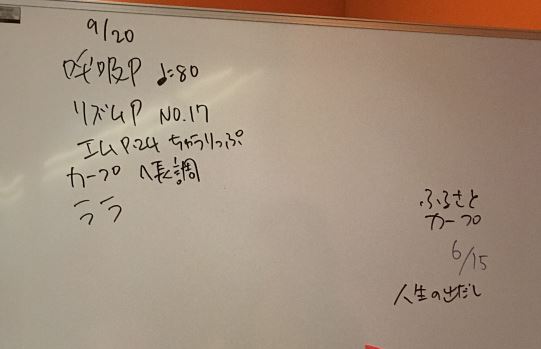 9/20
呼吸P ♩=80
リズムP NO.17
エムP.24 ちゅうりっぷ
カープ ヘ長調
ララ
ふるさと
カープ
6/15
人生の出だし